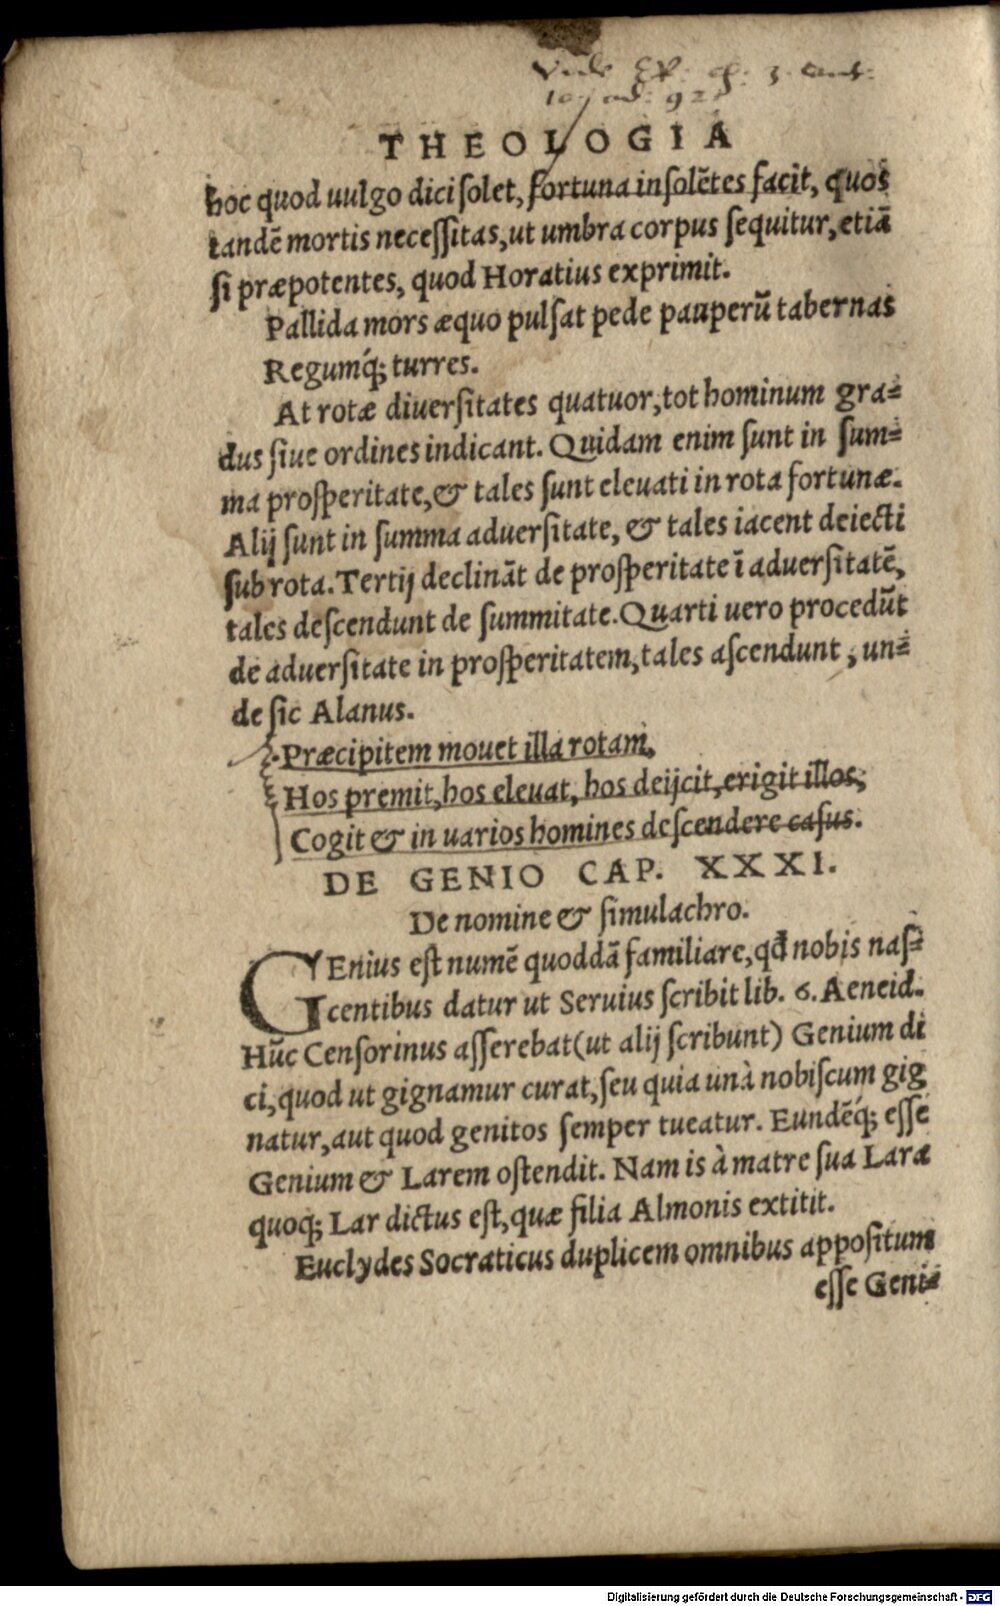 THEOLOGIA
hoc quod uulgo dici solet, fortuna insolẽtes facit, quos
tandẽ mortis necessitas, ut umbra corpus sequitur, etiã
si præpotentes, quod Horatius exprimit.
Pallida mors æquo pulsat pede pauperũ tabernas
Regumq́; turres.
At rotæ diuersitates quatuor, tot hominum gra-
dus siue ordines indicant. Quidam enim sunt in sum-
ma prosperitate, & tales sunt eleuati in rota fortunæ.
Alij sunt in summa aduersitate, & tales iacent deiecti
sub rota. Tertij declinãt de prosperitate ĩ aduersitatẽ,
tales descendunt de summitate. Quarti uero procedũt
de aduersitate in prosperitatem, tales ascendunt, un-
de sic Alanus.
Præcipitem mouet illa rotam,
Hos premit, hos eleuat, hos deijcit, erigit illos,
Cogit & in uarios homines descendere casus.
DE GENIO CAP. XXXI.
De nomine & simulachro.
GEnius est numẽ quoddã familiare, qđ nobis nas-
centibus datur ut Seruius scribit lib. 6. Aeneid.
Hũc Censorinus asserebat (ut alij scribunt) Genium di
ci, quod ut gignamur curat, seu quia unà nobiscum gig
natur, aut quod genitos semper tueatur. Eundẽq́; esse
Genium & Larem ostendit. Nam is à matre sua Laræ
quoq; Lar dictus est, quæ filia Almonis extitit.
Euclydes Socraticus duplicem omnibus appositum
esse Geni-
Digitalisierung gefördert durch die Deutsche Forschungsgemeinschaft - DFG